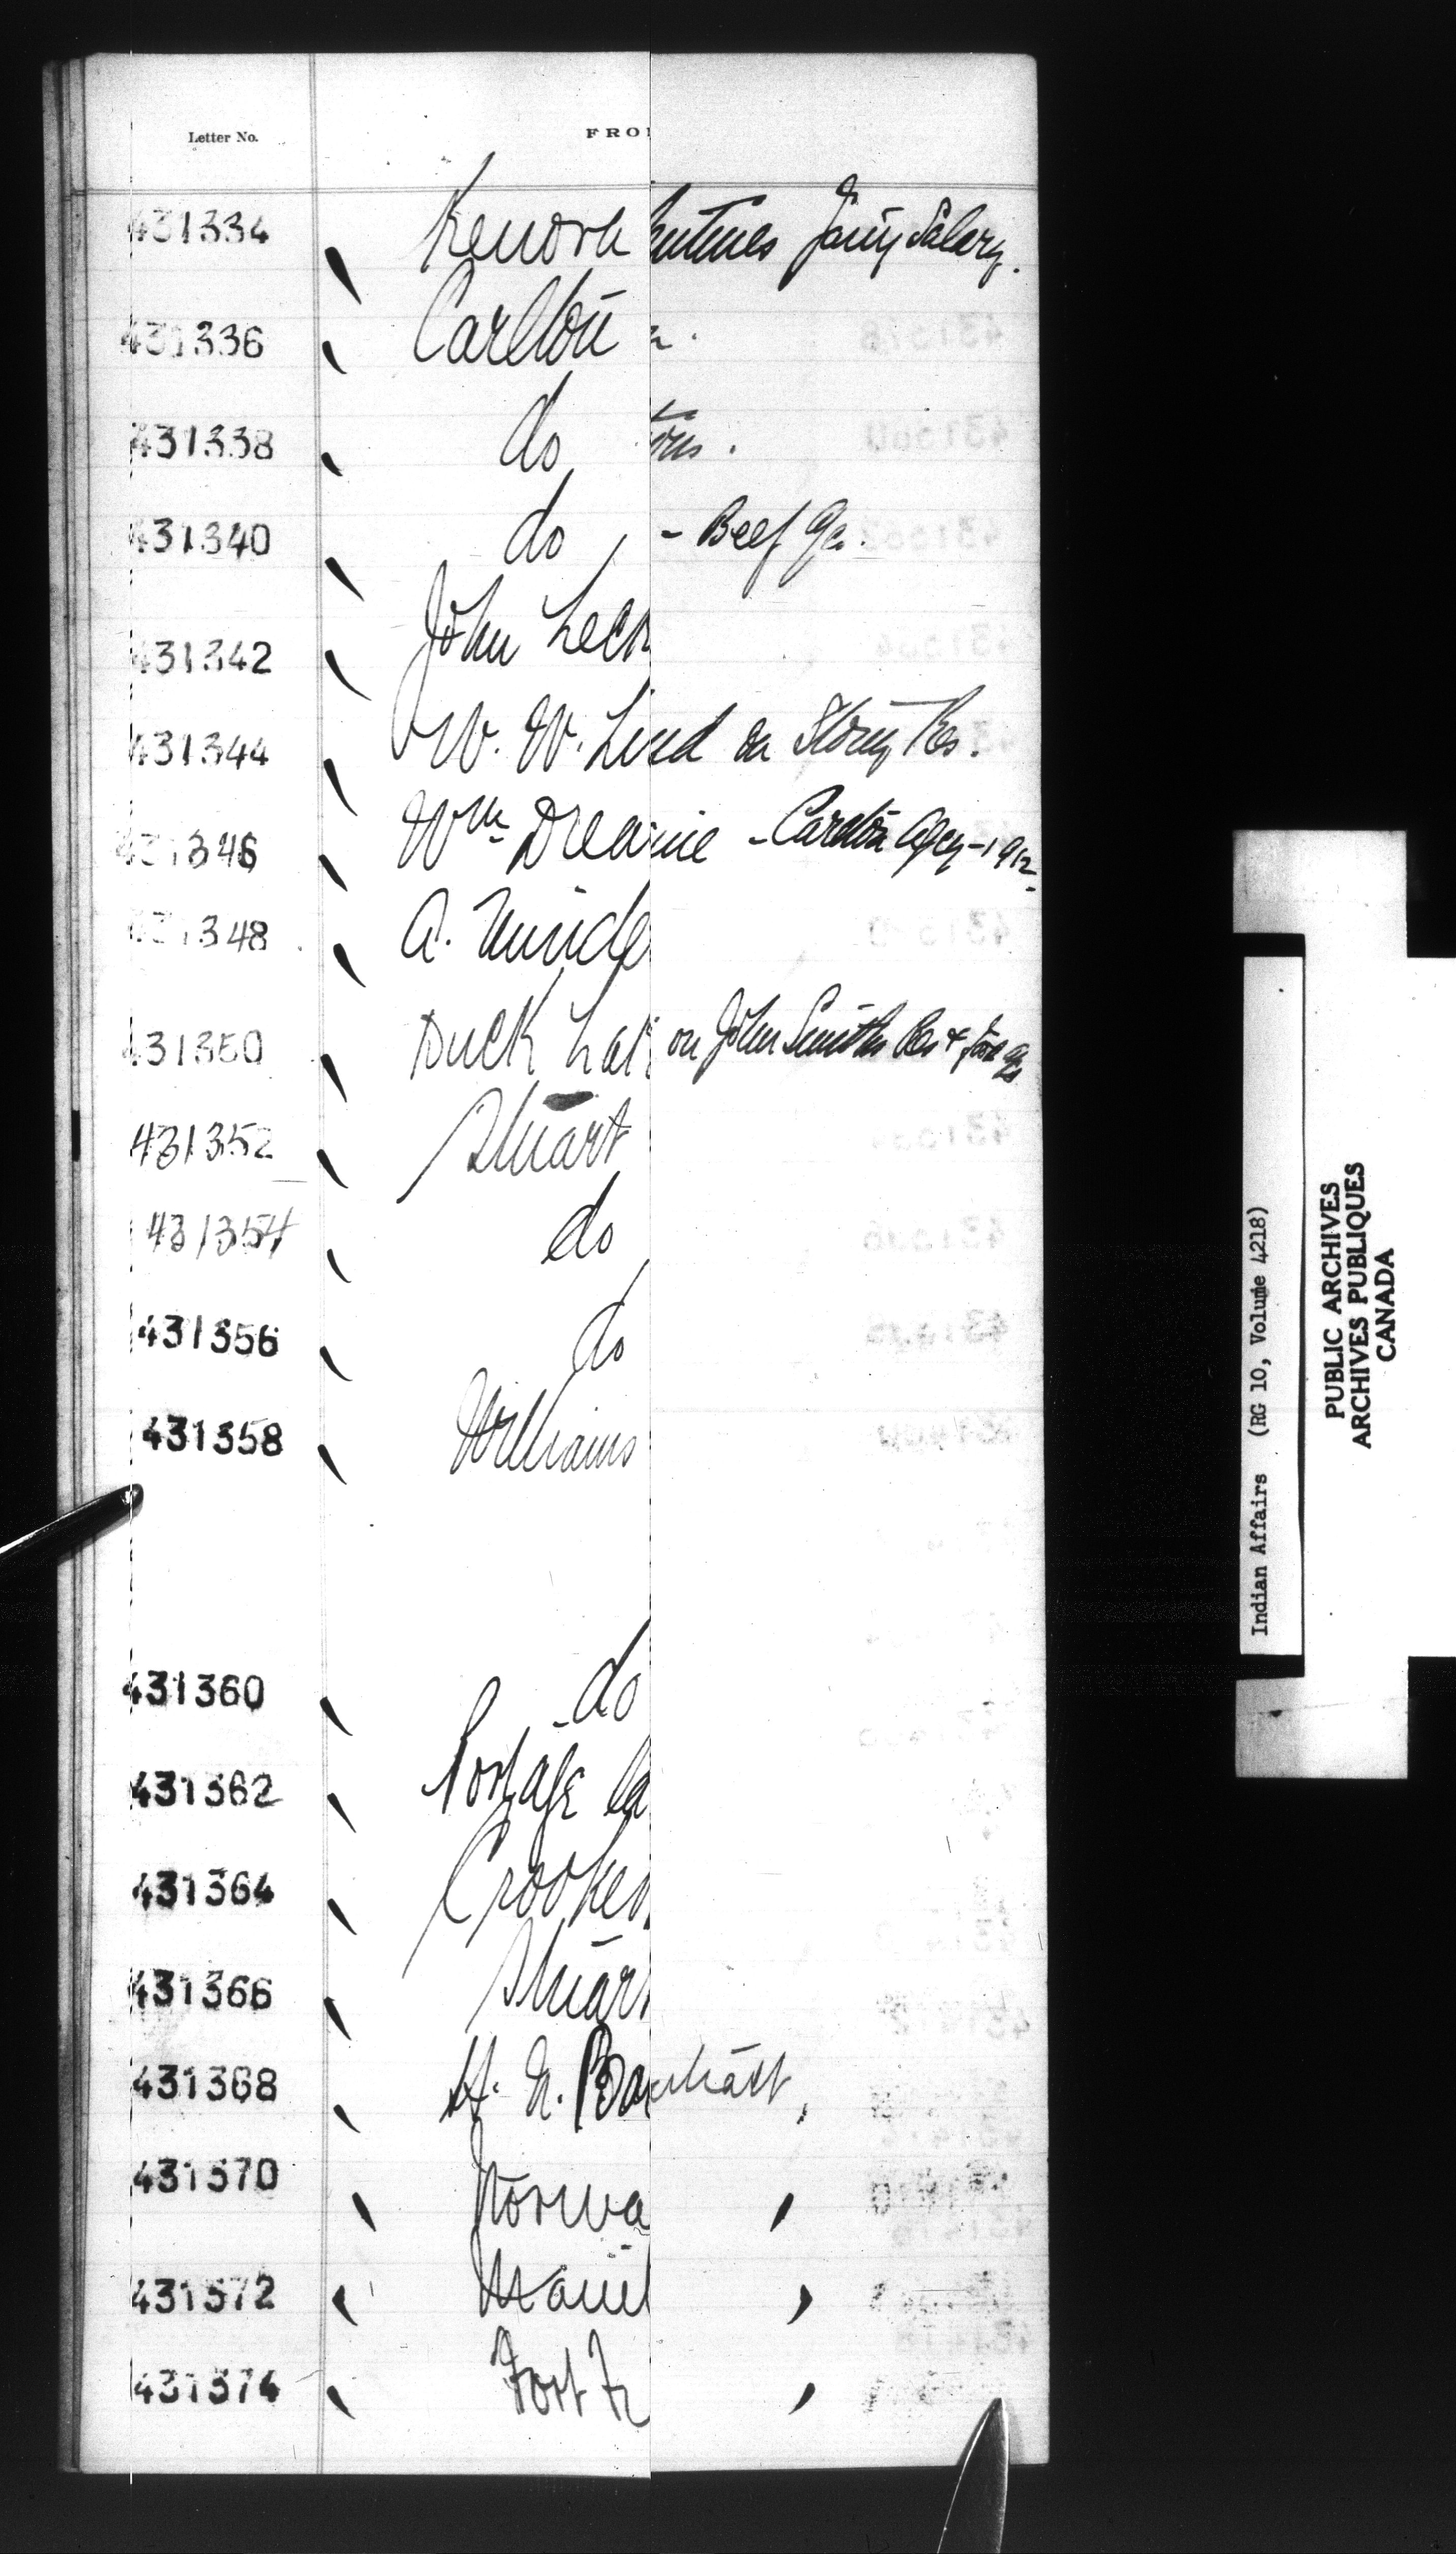 Letter No. FRO
431334 Kenora Jany Salary.
431336 Carlton
431338 do
431340 do - Beef &c.
431342 John Leck
431344 W. W. Lind on Stony Res.
431346 Wm Drea - Carlton Agcy - 1912
431348 A.
431350 Duck Lak on John Smith Res +
431352 Stuart
431354 do
431356 do
431358 Williams
431360 do
431362 Portage la
431364 Crooked
431366 Stuart
431368 H. N. Barnhart
431370 Norwa
431372 Manit
431374 Fort Fr
Indian Affairs (RG 10, Volume 4218)
PUBLIC ARCHIVES
ARCHIVES PUBLIQUES
CANADA